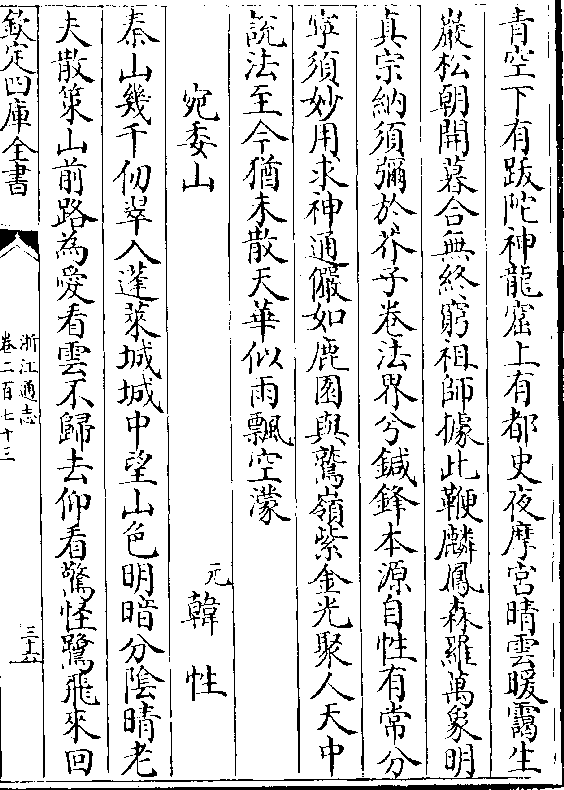 青空下有跋陀神龍窟上有都史夜摩宮晴雲暖靄生
巖松朝開暮合無終窮祖師據此鞭麟鳳森羅萬象明
真宗納須彌於芥子卷法界兮鍼鋒本源自性有常分
寧須妙用求神通儼如鹿園與鷲嶺紫金光聚人天中
說法至今猶未散天華似雨飄空濛
宛委山
元韓性
秦山幾千仞翠入蓬萊城城中望山色明暗分陰晴老
夫散策山前路為愛看雲不歸去仰看驚怪鷺飛來回
欽定四庫全書
浙江通志
卷二百七十三
三十六